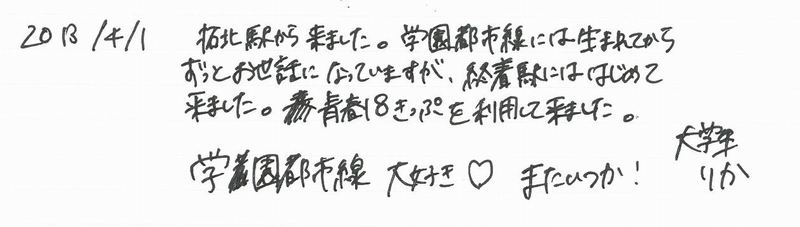 2013/4/1 拓北駅から来ました。学園都市線には生まれてから
ずっとお世話になっていますが、終着駅にははじめて
来ました。青春18きっぷを利用して来ました。
学園都市線 大好き♡ またいつか!
大学生
りか